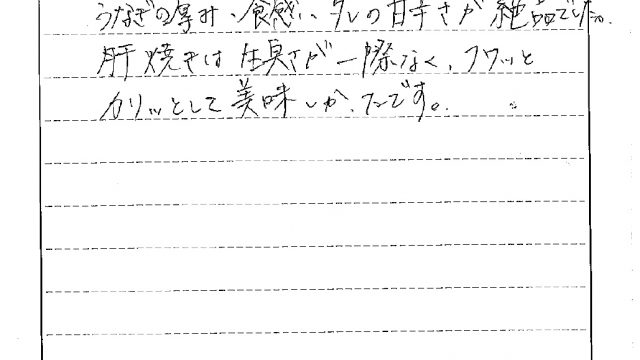 うなぎの厚み、食感、タレの甘辛さが絶品でした。
肝焼きは生臭さが一際なく、フワッと
カリッとして美味しかったです。